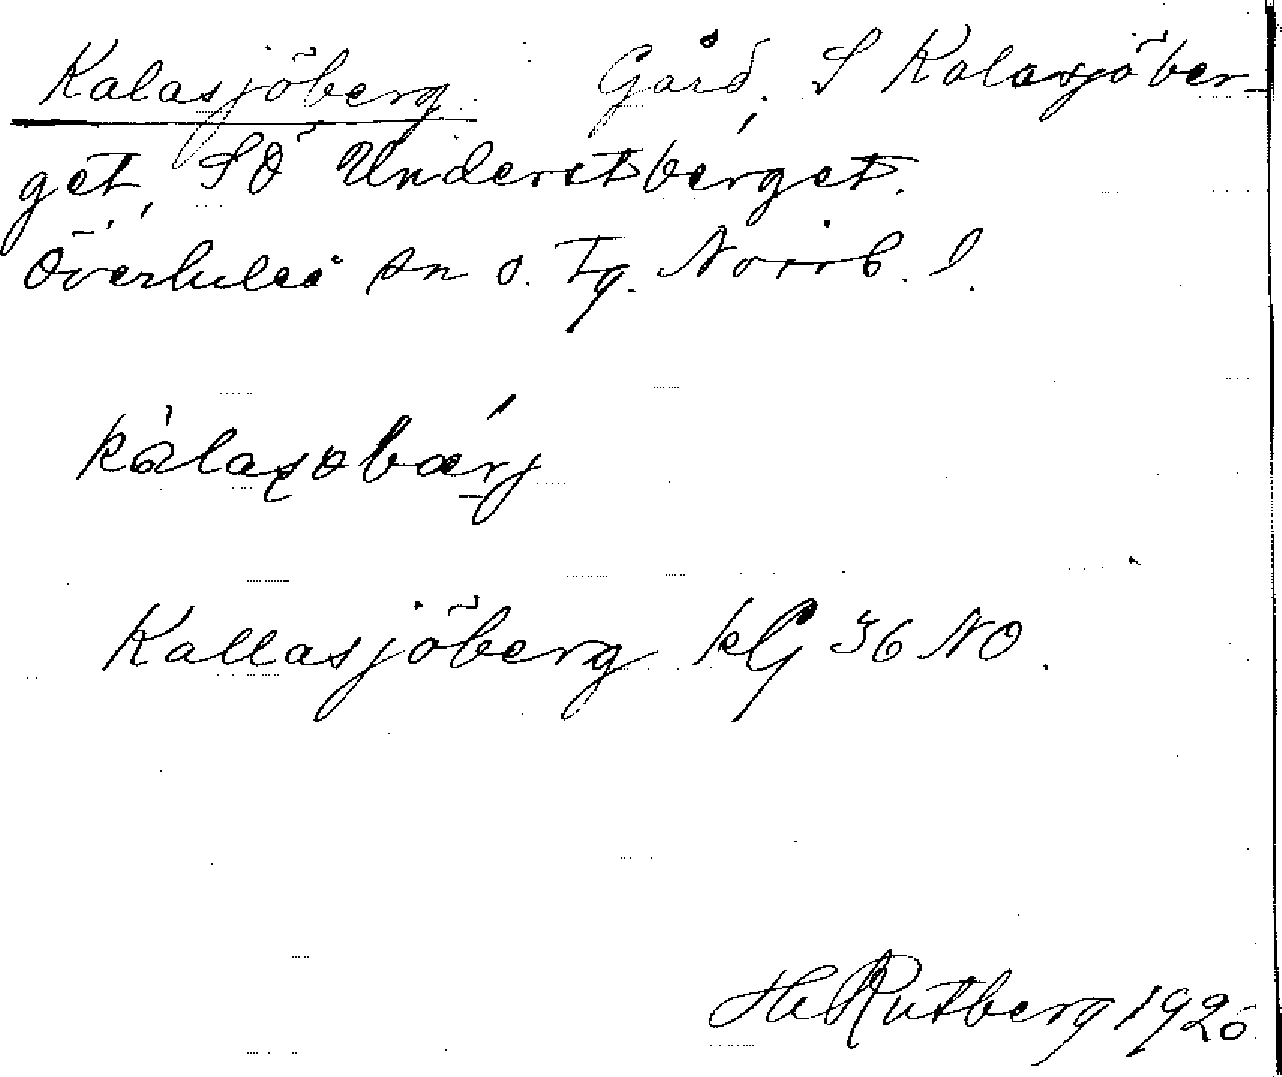 Kalasjöberg. Gård. S Kalasjöber-
get, SÖ Understberget.
Överluleå sn o. Tg. Norrb. l.
Kallasjöberg kG 36 NO.
H Rutberg 192